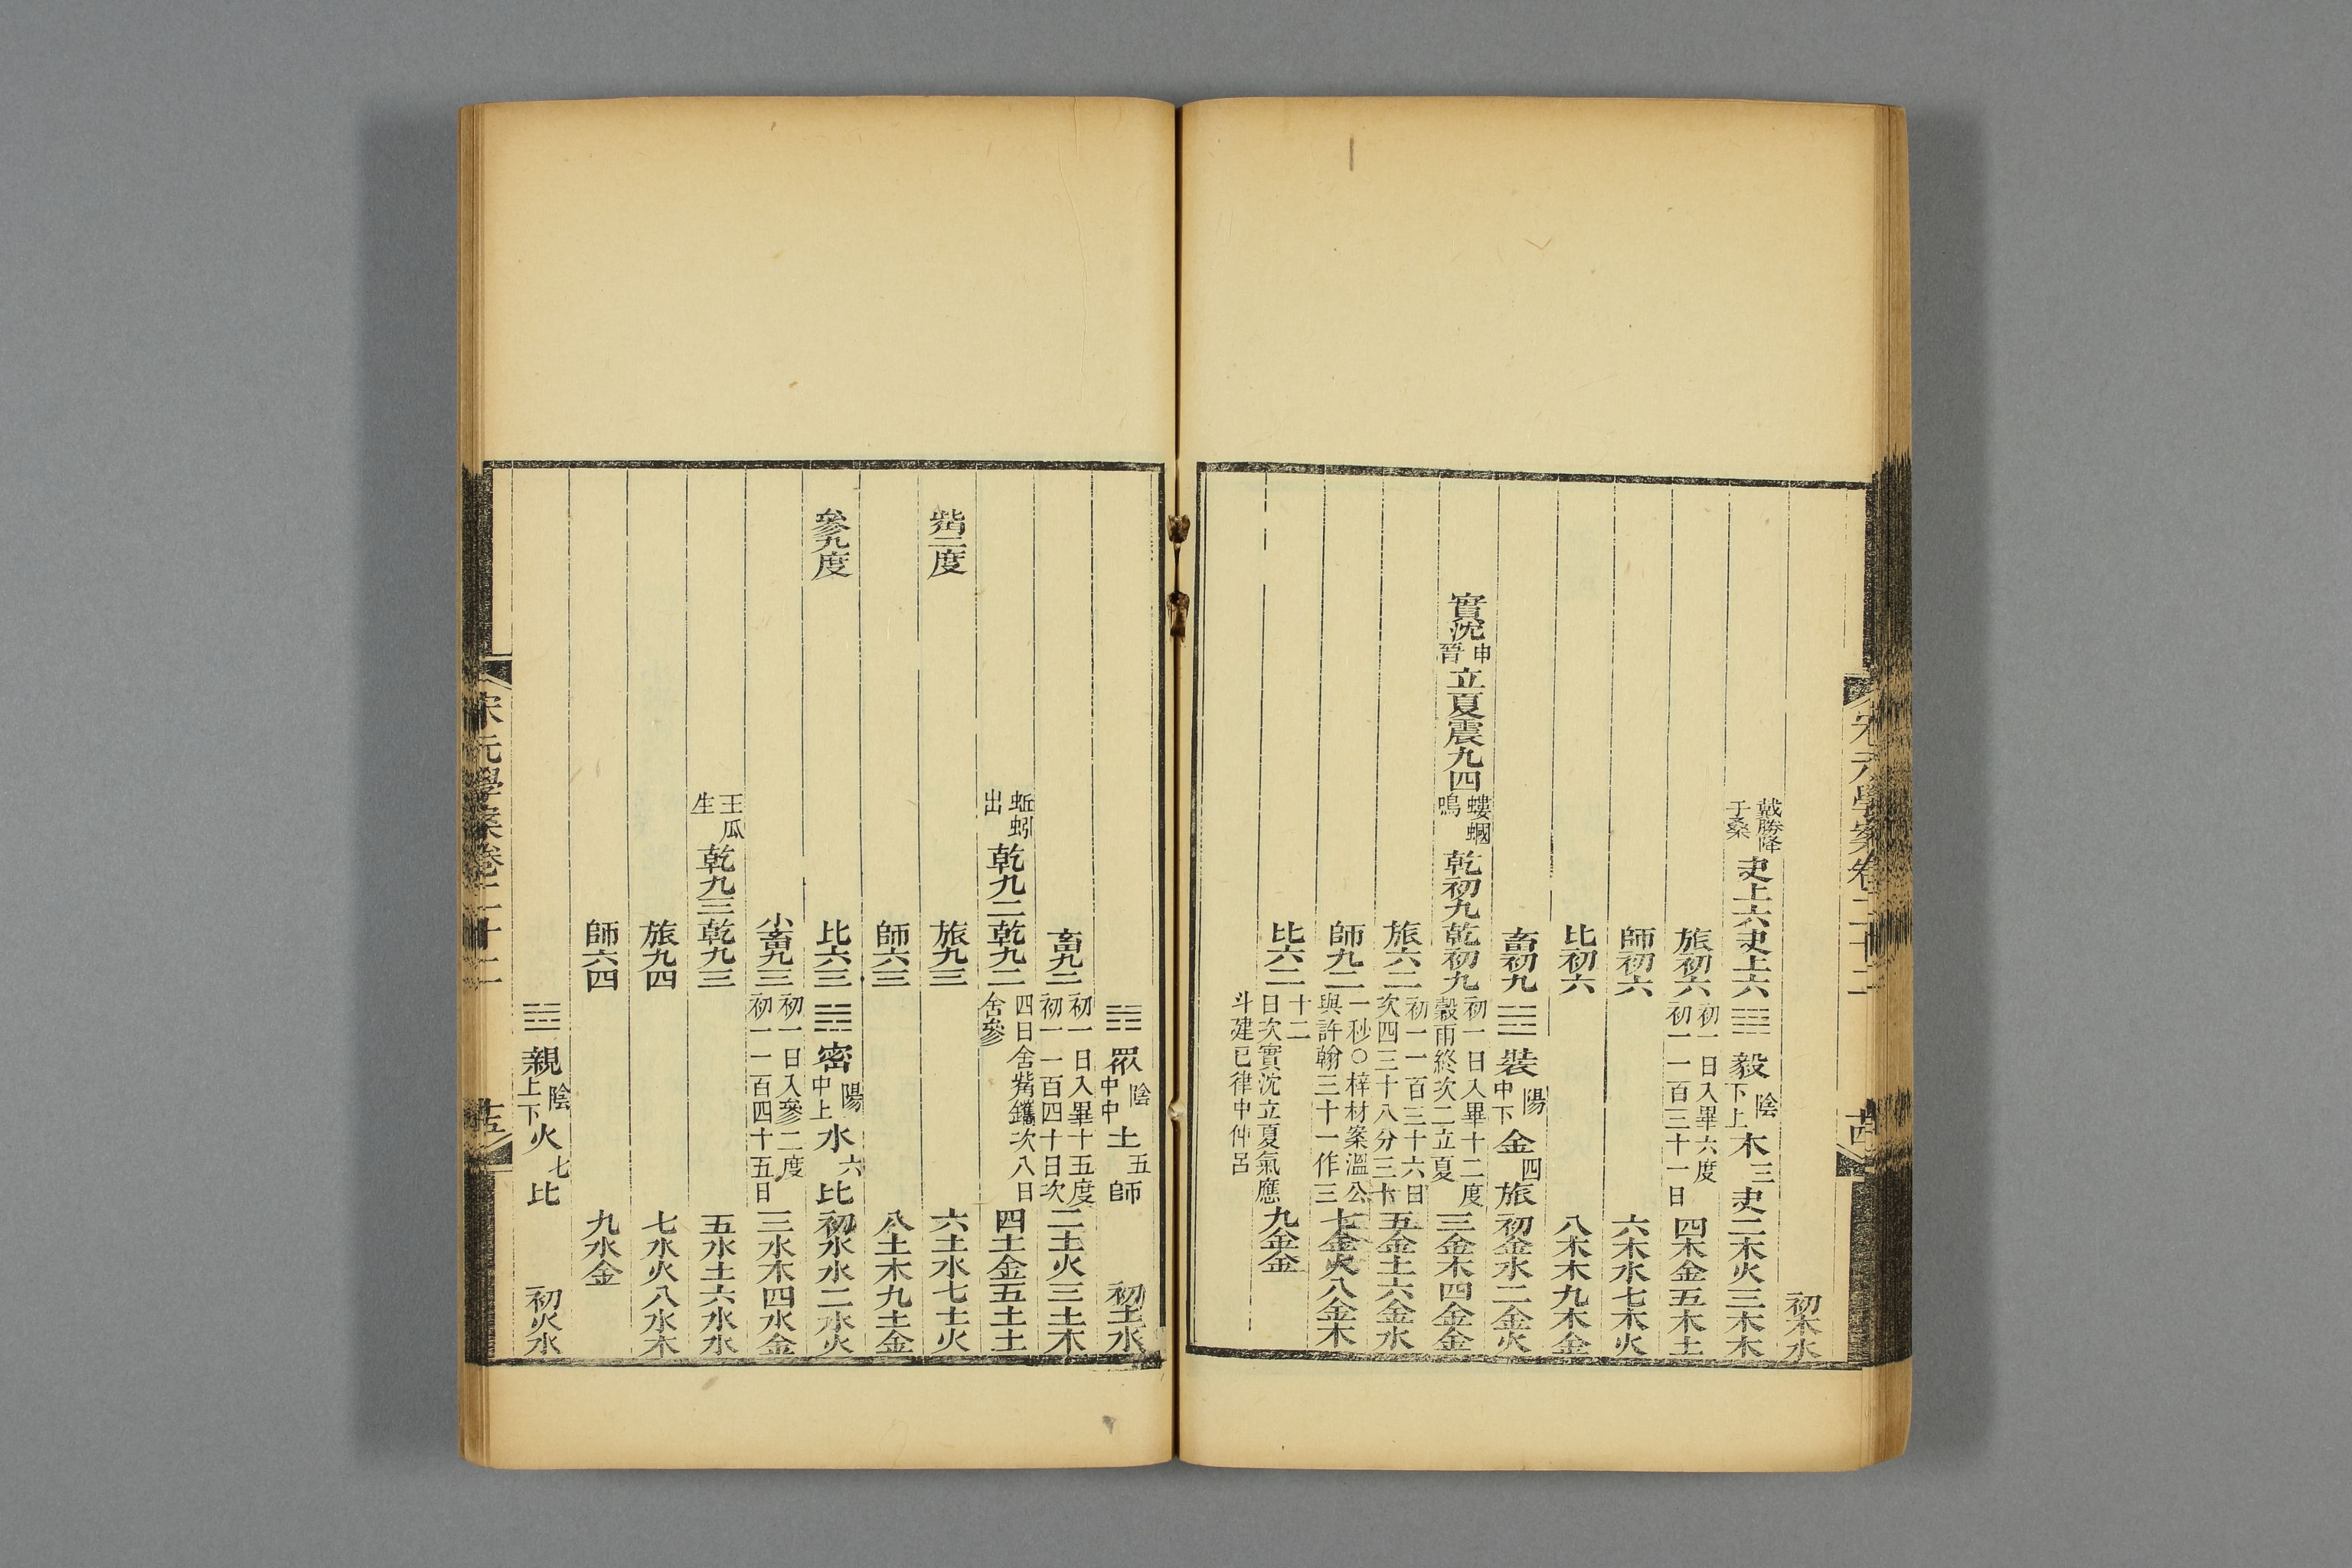 宋元學案卷二十二
十四
初木水
戴勝降于桑 夬上六夬上六 毅 陰下上 木三 夬 二木火三木木
旅初六 初一日入畢六度初一一百三十一日 四木金五木土
師初六 六木水七木火
比初六 八木木九木金
畜初九 裝 陽中下 金四 旅 初金水二金火
實沈 申晉 立夏震九四 螻蟈鳴 乾初九乾初九 初一日入畢十二度穀雨終次二立夏 三金木四金金
旅六二 初一一百三十六日次四三十八分三十 五金土六金水
師九二 一秒○梓材案溫公與許翰三十一作三 七金火八金木
比六二 十二日次實沈立夏氣應斗建巳律中仲呂 九金金
眾 陰中中 土五 師 初土水
畜九二 初一日入畢十五度初一一百四十日次 二土火三土木
蚯蚓出 乾九二乾九二 四日舍觜鑴次八日舍參 四土金五土土
觜二度 旅九三 六土水七土火
師六三 八土木九土金
參九度 比六三 密 陽中上 水六 比 初水水二水火
小畜九三 初一日入參二度初一一百四十五日 三水木四水金
王瓜生 乾九三乾九三 五水土六水水
旅九四 七水火八水木
師六四 九水金
親 陰上下 火七 比 初火水
宋元學案卷二十二
十五